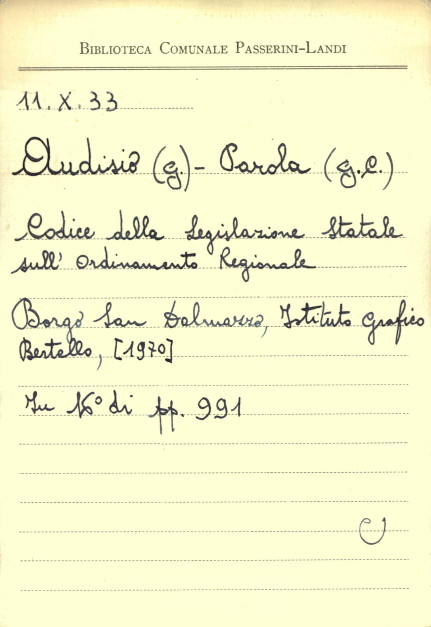 BIBLIOTECA COMUNALE PASSERINI-LANDI
11. X. 33
Audisio (G.) - Parola (G.C.)
Codice della Legislazione Statale
sull' Ordinamento Regionale
Borgo San Dalmazzo, Istituto Grafico
Bertello, [1970]
In 16° di pp. 991